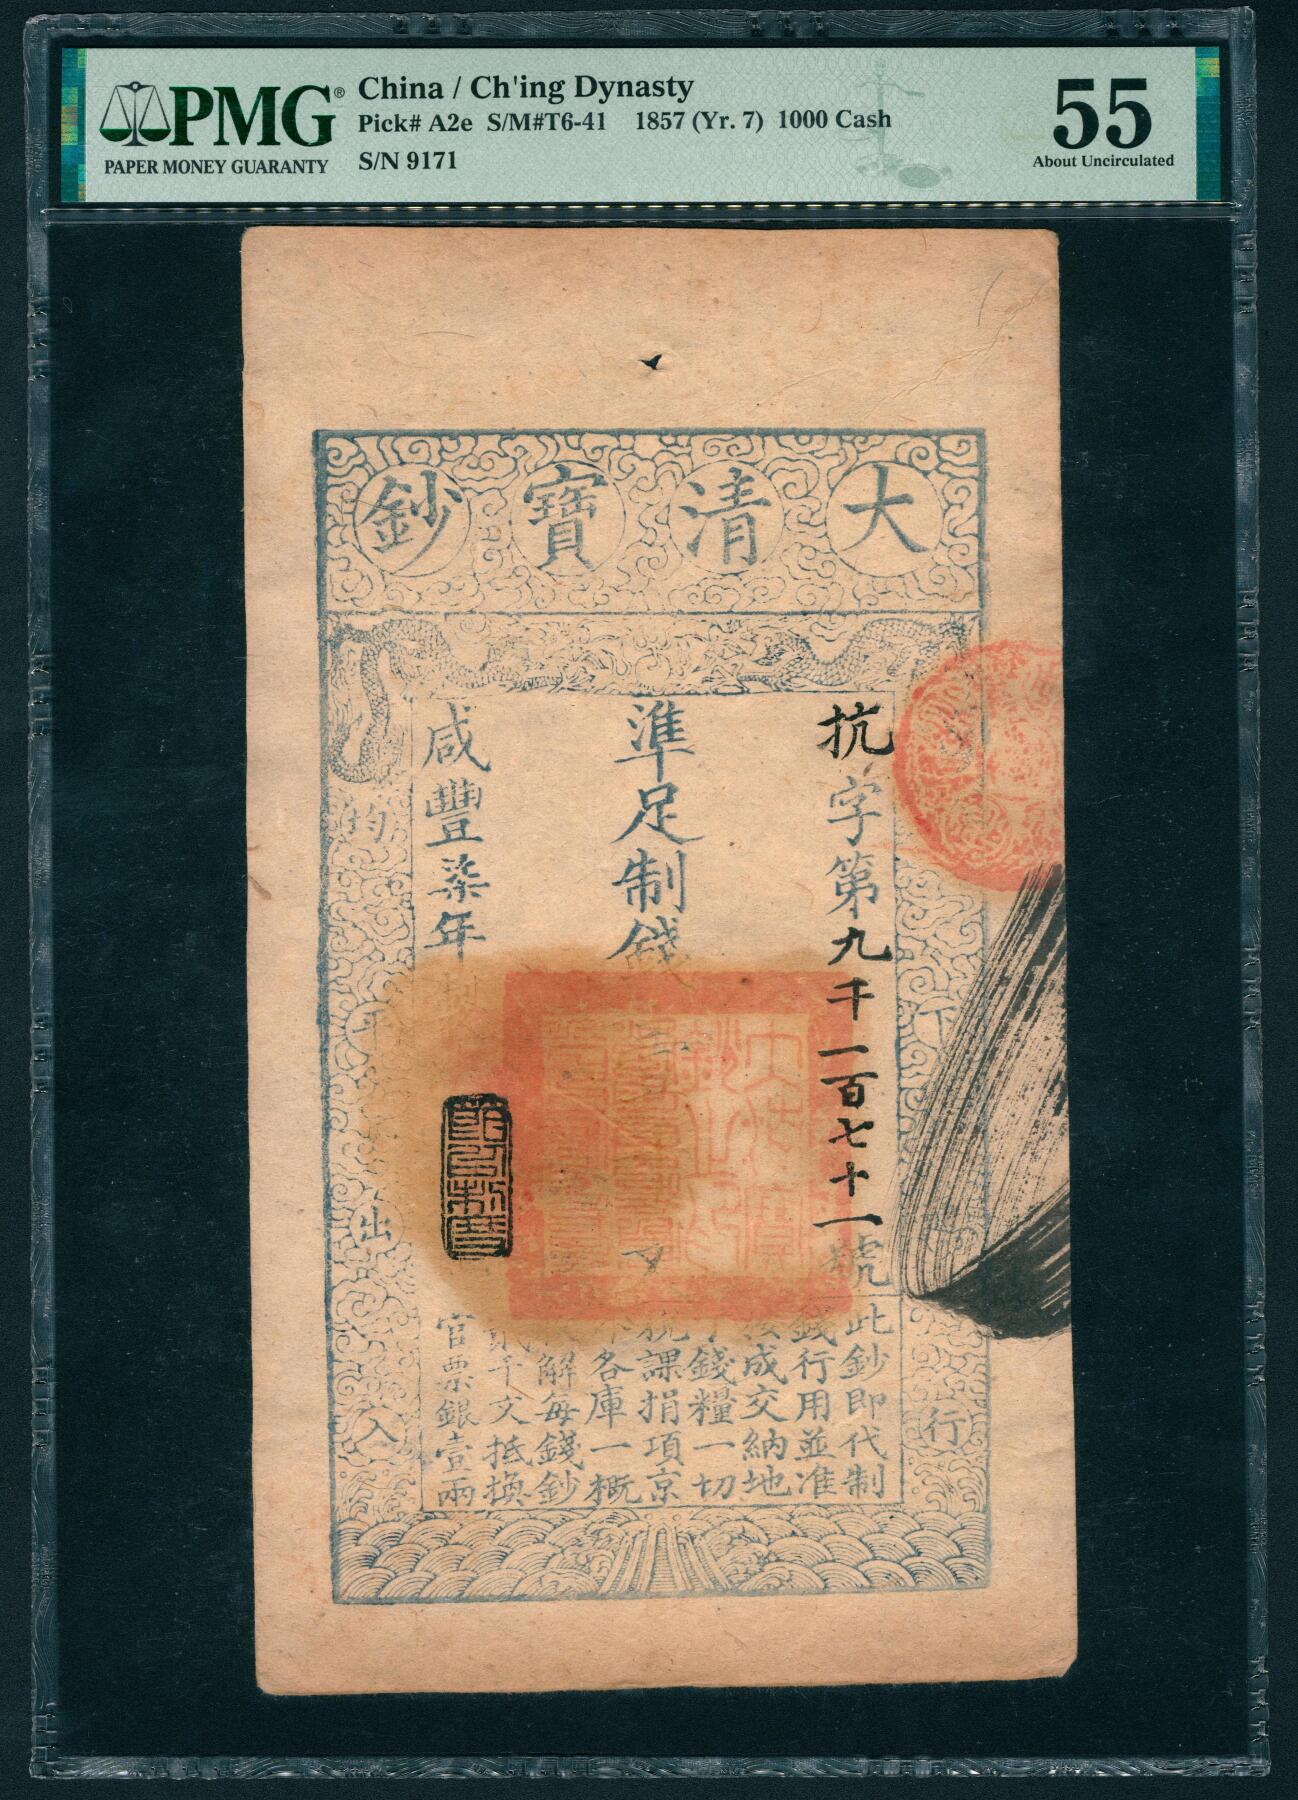 PMG®
PAPER MONEY GUARANTY
China / Ch'ing Dynasty
Pick# A2e S/M#T6-41 1857 (Yr. 7) 1000 Cash
S/N 9171
55
About Uncirculated
大清寶鈔
抗字第九千一百七十一號
準足制錢
咸豐柒年製
下行
均平出入
此鈔即代制
錢行用並准
按成交納地
丁錢糧一切
稅課捐項京
外各庫一概
收解每錢鈔
貳千文抵換
官票銀壹兩